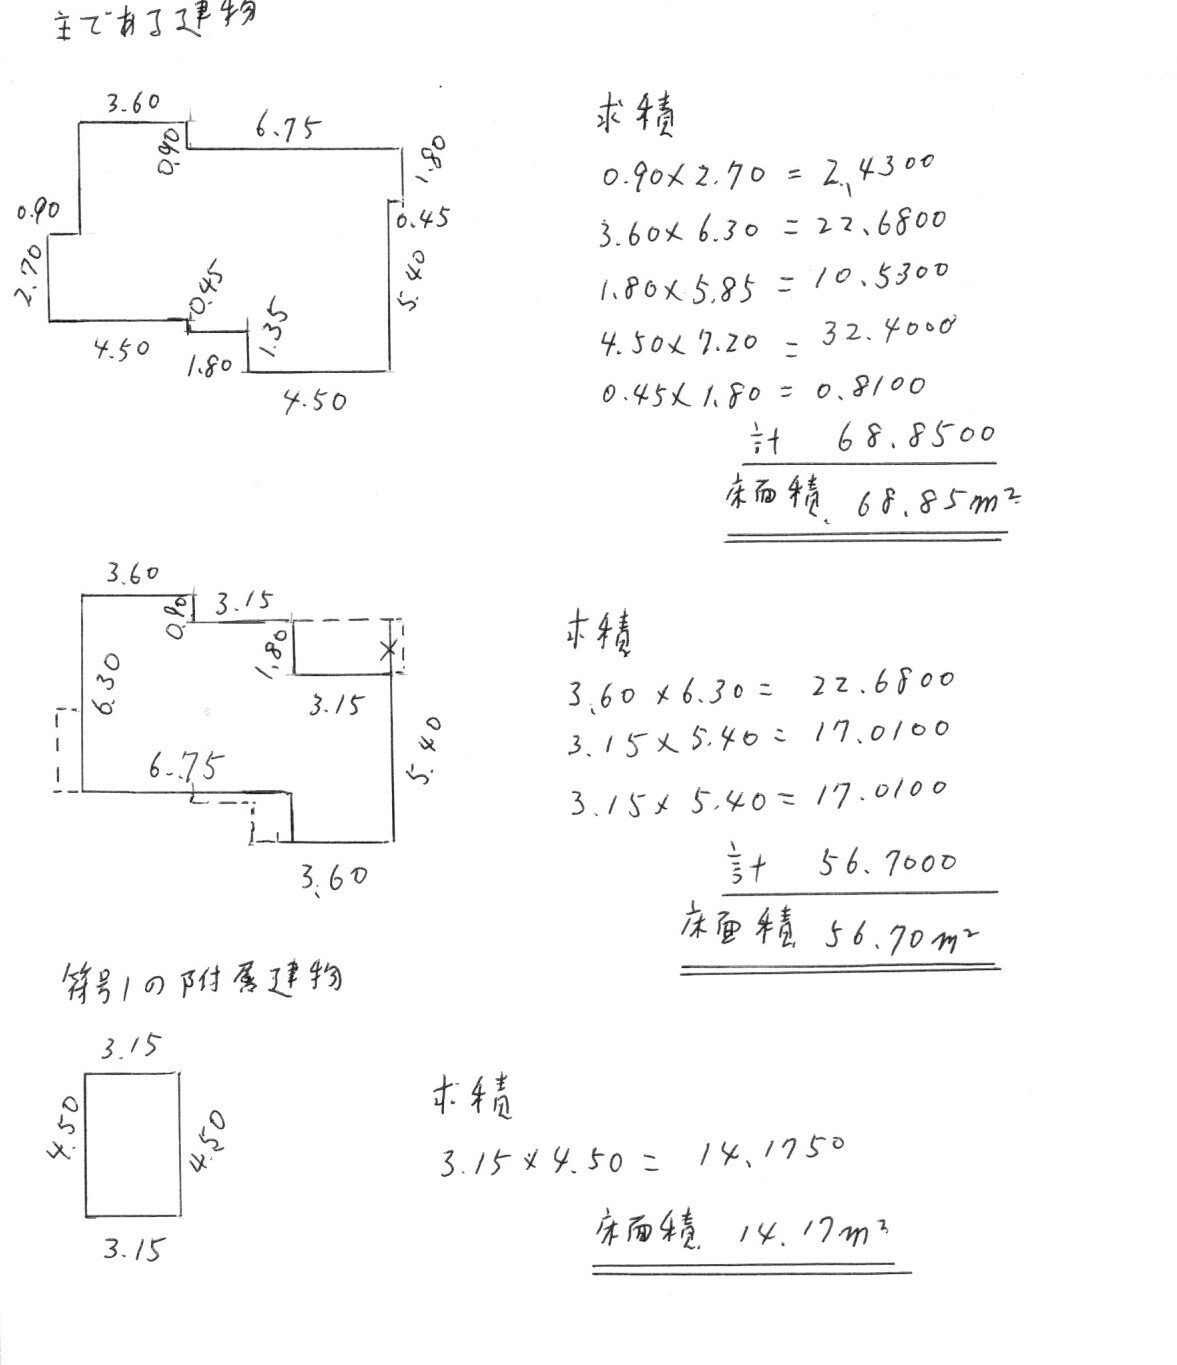 主である建物
3.60
0.90
6.75
1.80
0.90
0.45
2.70
5.40
0.45
1.35
4.50
1.80
4.50
求積
0.90×2.70 = 2.4300
3.60×6.30 = 22.6800
1.80×5.85 = 10.5300
4.50×7.20 = 32.4000
0.45×1.80 = 0.8100
計 68.8500
床面積 68.85m²
3.60
0.90
3.15
1.80
×
6.30
3.15
6.75
5.40
3.60
求積
3.60×6.30 = 22.6800
3.15×5.40 = 17.0100
3.15×5.40 = 17.0100
計 56.7000
床面積 56.70m²
符号1の附属建物
3.15
4.50
4.50
3.15
求積
3.15×4.50 = 14.1750
床面積 14.17m²